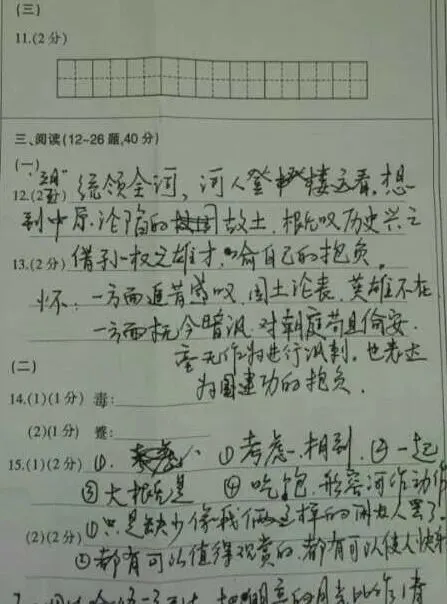 (三)
11.(2分)
三、阅读(12-26题,40分)
(一)
12.(2分) 统领全词,词人登楼远看,想
到中原沦陷的故土,感叹历史兴亡
13.(2分)借孙权之雄才,喻自己的抱负。
怀:一方面追昔感叹,国土沦丧,英雄不在
一方面抚今暗讽,对朝庭苟且偷安
毫无作为进行讽刺,也表达
为国建功的抱负.
(二)
14.(1)(1分) 毒:
(2)(1分) 蹙:
15.(1)(2分) ①. ①考虑.相到.②一起
③大概是 ④吃饱.形容词作动作
(2)(2分)①只是缺少像我俩这样的闲人罢了
②都有可以值得观赏的,都有可以使人快乐